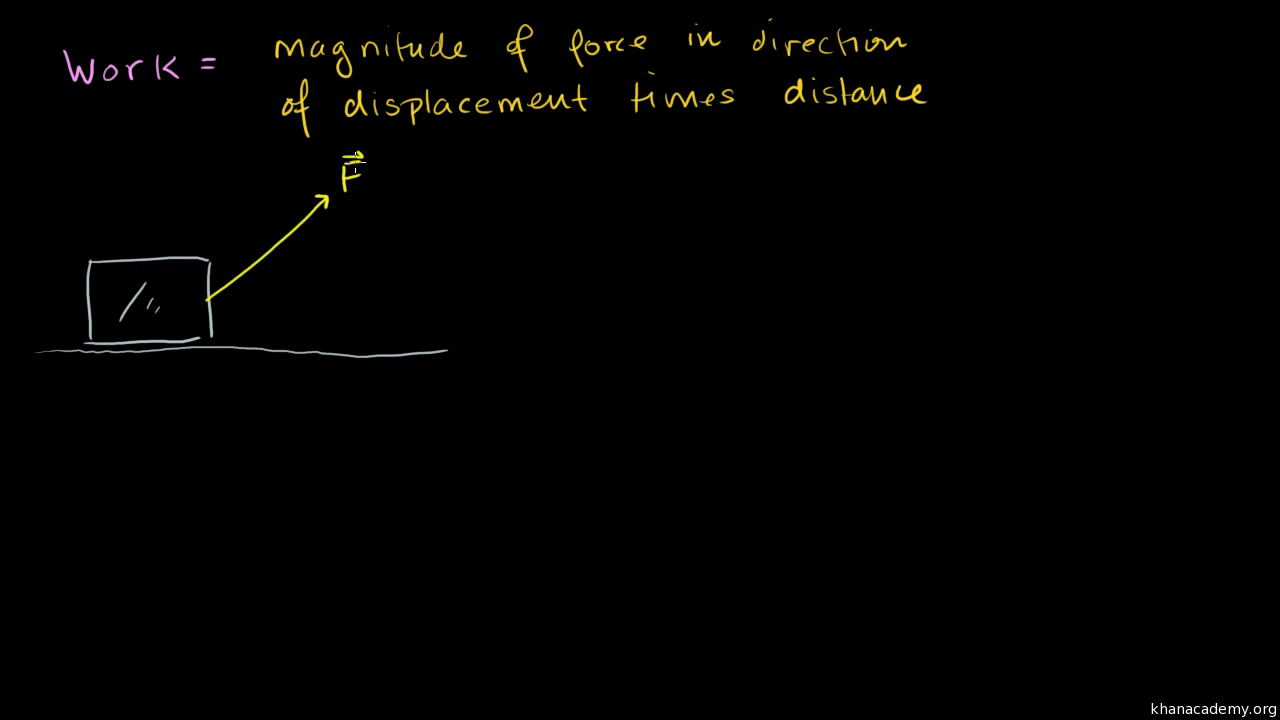 Work = magnitude of force in direction
of displacement times distance
F
khanacademy.org